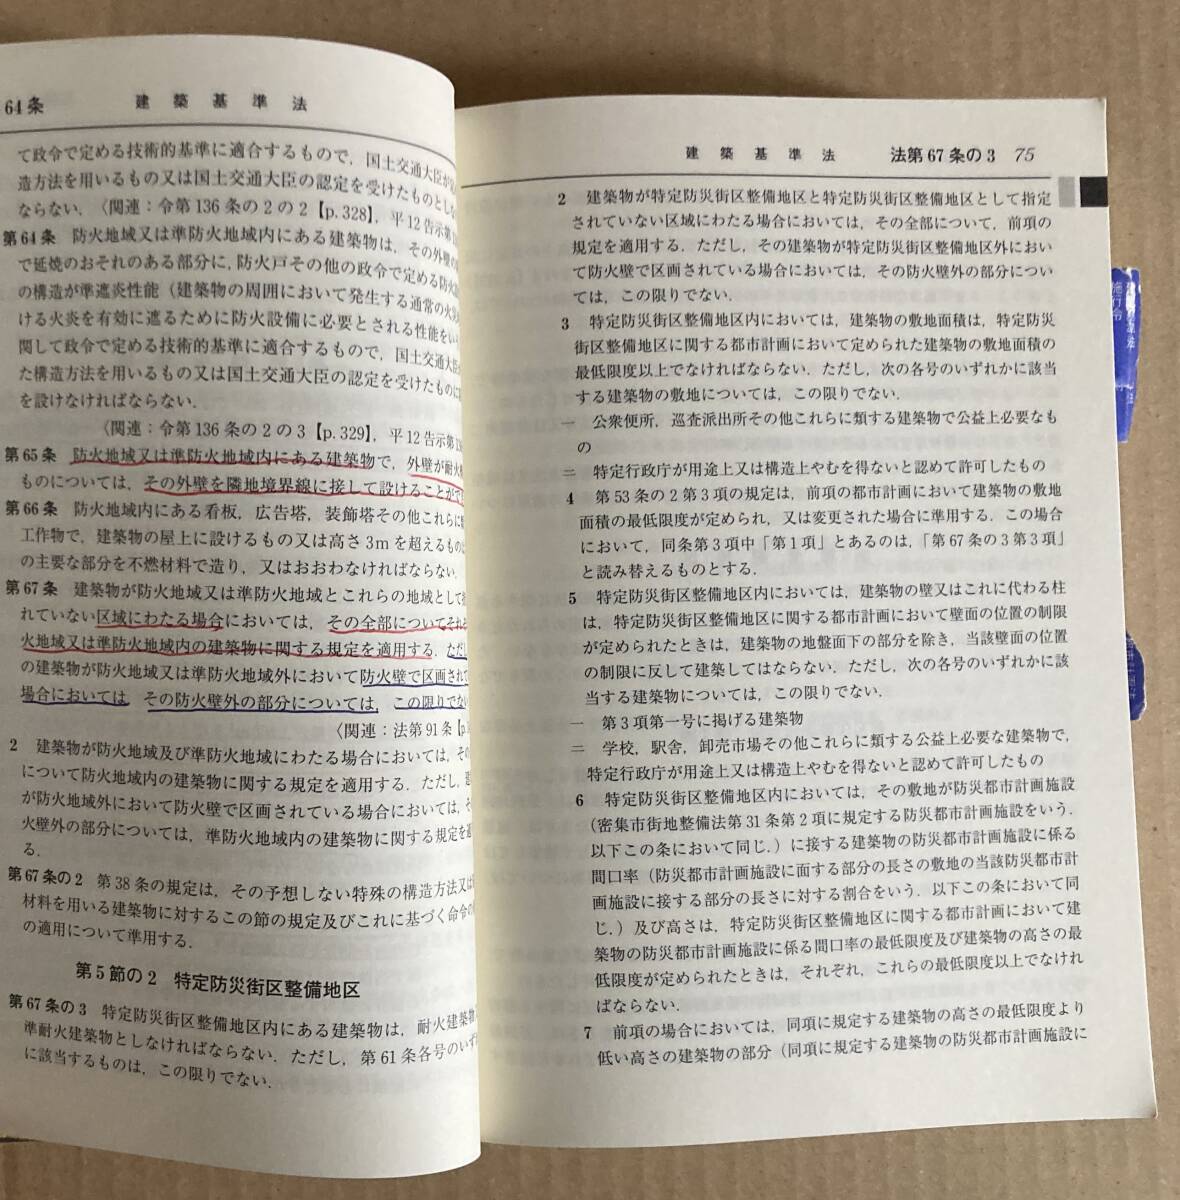 64条 建築基準法
て政令で定める技術的基準に適合するもので，国土交通大臣が
造方法を用いるもの又は国土交通大臣の認定を受けたものとし
ならない．〈関連：令第136条の2の2【p.328】，平12告示第
第64条 防火地域又は準防火地域内にある建築物は，その外壁の
で延焼のおそれのある部分に，防火戸その他の政令で定める防火
の構造が準遮炎性能（建築物の周囲において発生する通常の火
ける火炎を有効に遮るために防火設備に必要とされる性能をい
関して政令で定める技術的基準に適合するもので，国土交通大臣
た構造方法を用いるもの又は国土交通大臣の認定を受けたものに
を設けなければならない．
〈関連：令第136条の2の3【p.329】，平12告示第
第65条 防火地域又は準防火地域内にある建築物で，外壁が耐火
ものについては，その外壁を隣地境界線に接して設けることがで
第66条 防火地域内にある看板，広告塔，装飾塔その他これらに
工作物で，建築物の屋上に設けるもの又は高さ3mを超えるもの
の主要な部分を不燃材料で造り，又はおおわなければならない．
第67条 建築物が防火地域又は準防火地域とこれらの地域として
れていない区域にわたる場合においては，その全部についてそれ
火地域又は準防火地域内の建築物に関する規定を適用する．ただし
の建築物が防火地域又は準防火地域外において防火壁で区画されて
場合においては，その防火壁外の部分については，この限りでない
〈関連：法第91条【p.
2 建築物が防火地域及び準防火地域にわたる場合においては，その
について防火地域内の建築物に関する規定を適用する．ただし，
が防火地域外において防火壁で区画されている場合においては，
火壁外の部分については，準防火地域内の建築物に関する規定を
る．
第67条の2 第38条の規定は，その予想しない特殊の構造方法又は
材料を用いる建築物に対するこの節の規定及びこれに基づく命令の
の適用について準用する．
第5節の2 特定防災街区整備地区
第67条の3 特定防災街区整備地区内にある建築物は，耐火建築物
準耐火建築物としなければならない．ただし，第61条各号のいず
に該当するものは，この限りでない．
建築基準法 法第67条の3 75
2 建築物が特定防災街区整備地区と特定防災街区整備地区として指定
されていない区域にわたる場合においては，その全部について，前項の
規定を適用する．ただし，その建築物が特定防災街区整備地区外におい
て防火壁で区画されている場合においては，その防火壁外の部分につい
ては，この限りでない．
3 特定防災街区整備地区内においては，建築物の敷地面積は，特定防災
街区整備地区に関する都市計画において定められた建築物の敷地面積の
最低限度以上でなければならない．ただし，次の各号のいずれかに該当
する建築物の敷地については，この限りでない．
一 公衆便所，巡査派出所その他これらに類する建築物で公益上必要なも
の
二 特定行政庁が用途上又は構造上やむを得ないと認めて許可したもの
4 第53条の2第3項の規定は，前項の都市計画において建築物の敷地
面積の最低限度が定められ，又は変更された場合に準用する．この場合
において，同条第3項中「第1項」とあるのは，「第67条の3第3項」
と読み替えるものとする．
5 特定防災街区整備地区内においては，建築物の壁又はこれに代わる柱
は，特定防災街区整備地区に関する都市計画において壁面の位置の制限
が定められたときは，建築物の地盤面下の部分を除き，当該壁面の位置
の制限に反して建築してはならない．ただし，次の各号のいずれかに該
当する建築物については，この限りでない．
一 第3項第一号に掲げる建築物
二 学校，駅舎，卸売市場その他これらに類する公益上必要な建築物で，
特定行政庁が用途上又は構造上やむを得ないと認めて許可したもの
6 特定防災街区整備地区内においては，その敷地が防災都市計画施設
（密集市街地整備法第31条第2項に規定する防災都市計画施設をいう．
以下この条において同じ．）に接する建築物の防災都市計画施設に係る
間口率（防災都市計画施設に面する部分の長さの敷地の当該防災都市計
画施設に接する部分の長さに対する割合をいう．以下この条において同
じ．）及び高さは，特定防災街区整備地区に関する都市計画において建
築物の防災都市計画施設に係る間口率の最低限度及び建築物の高さの最
低限度が定められたときは，それぞれ，これらの最低限度以上でなけれ
ばならない．
7 前項の場合においては，同項に規定する建築物の高さの最低限度より
低い高さの建築物の部分（同項に規定する建築物の防災都市計画施設に
施行令